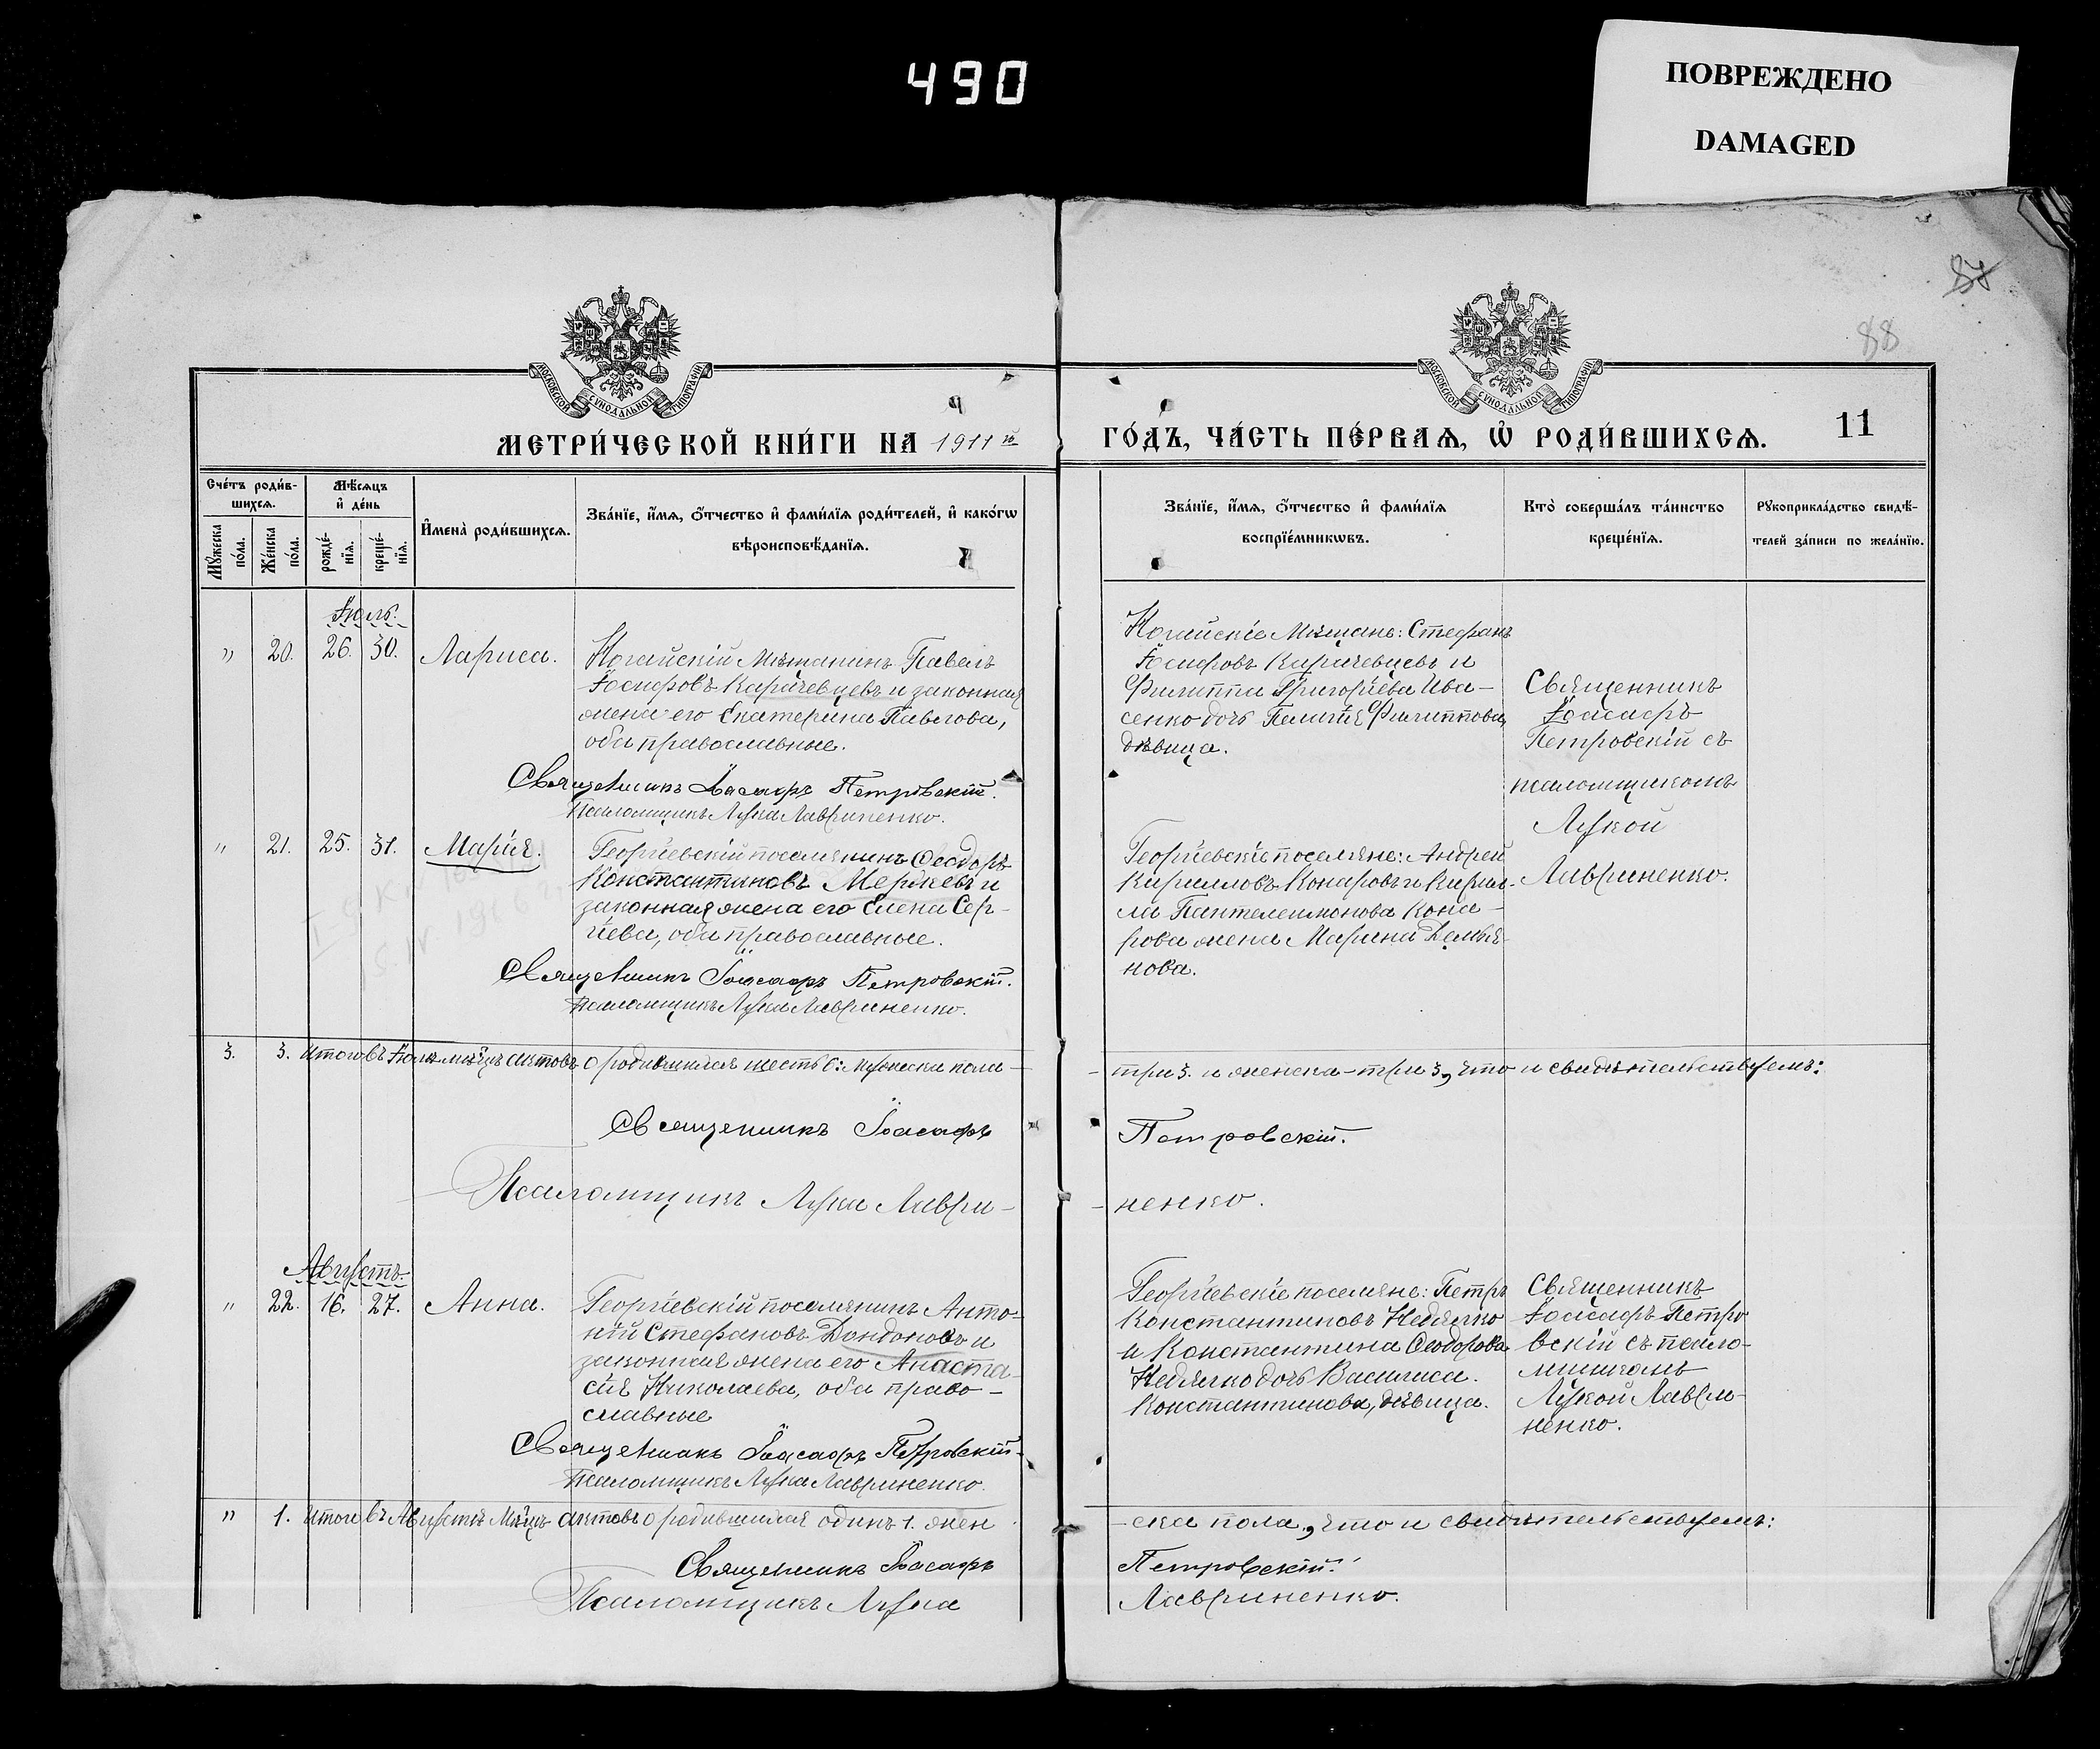 490
ПОВРЕЖДЕНО
DAMAGED
87
88
МОСКОВСКОЙ СѴНОДАЛЬНОЙ ТИПОГРАФІИ
МОСКОВСКОЙ СѴНОДАЛЬНОЙ ТИПОГРАФІИ
МЕТРИ́ЧЕСКОЙ КНИ́ГИ НА 1911 й
ГО́ДЪ, ЧА́СТЬ ПЕ́РВАѦ, Ѡ҆ РОДИ́ВШИХСѦ.
11
Сче́тъ роди́в-
шихсѧ.
Мꙋ́жеска
по́ла.
Же́нска
по́ла.
Мѣ́сѧцъ
и҆ де́нь
рожде́-
нїѧ.
креще́-
нїѧ.
И҆мена̀ роди́вшихсѧ.
Зва́нїе, и҆́мѧ, ѻ҆́тчество и҆ фами́лїѧ роди́телей, и҆ како́гѡ
вѣроисповѣ́данїѧ.
Зва́нїе, и҆́мѧ, ѻ҆́тчество и҆ фами́лїѧ
воспрїе́мникѡвъ.
Кто̀ соверша́лъ та́инство
креще́нїѧ.
Рꙋкоприкла́дство свидѣ́-
телей за́писи по жела́нїю.
Іюль.
" 20. 26. 30. Лариса.
Ногайскій Мѣщанинъ Павелъ
Іосифовъ Карачевцевъ и законная
жена его Екатерина Павлова,
оба православные.
Священникъ Іоасафъ Петровскій.
Псаломщикъ Лука Лавриненко.
Ногайскіе Мѣщане: Стефанъ
Іосифовъ Карачевцевъ и
Филиппа Григоріева Ива-
сенко дочь Пелагія Филиппова,
дѣвица.
Священникъ
Іоасафъ
Петровскій съ
псаломщикомъ
Лукой
Лавриненко.
" 21. 25. 31. Марія.
Георгіевскій поселянинъ Ѳеодоръ
Константиновъ Мержевъ и
законная жена его Елена Сер-
гіева, оба православные.
Священникъ Іоасафъ Петровскій.
Псаломщикъ Лука Лавриненко.
Георгіевскіе поселяне: Андрей
Кирилловъ Конаровъ и Кирил-
ла Пантелеимонова Кона-
рова жена Марина Демья-
нова.
3. 3. Итого въ Іюлѣ мѣсяцѣ актовъ о родившихся шесть 6: мужеска пола -
- три 3. и женска - три 3, что и свидѣтельствуемъ:
Священникъ Іоасафъ
Петровскій.
Псаломщикъ Лука Лаври-
- ненко.
Августъ.
" 22. 16. 27. Анна.
Георгіевскій поселянинъ Анто-
ній Стефановъ Дондоновъ и
законная жена его Анаста-
сія Николаева, оба право-
славные
Священникъ Іоасафъ Петровскій.
Псаломщикъ Лука Лавриненко.
Георгіевскіе поселяне: Петръ
Константиновъ Недялко
и Константина Ѳеодорова
Недялко дочь Василиса
Константинова, дѣвица.
Священникъ
Іоасафъ Петро
вскій съ псало-
мщикомъ
Лукой Лаври-
ненко.
" 1. Итого въ Августѣ Мѣсяцѣ актовъ о родившихся одинъ 1. жен
- ска пола, что и свидѣтельствуемъ:
Священникъ Іоасафъ
Петровскій.
Псаломщикъ Лука
Лавриненко.